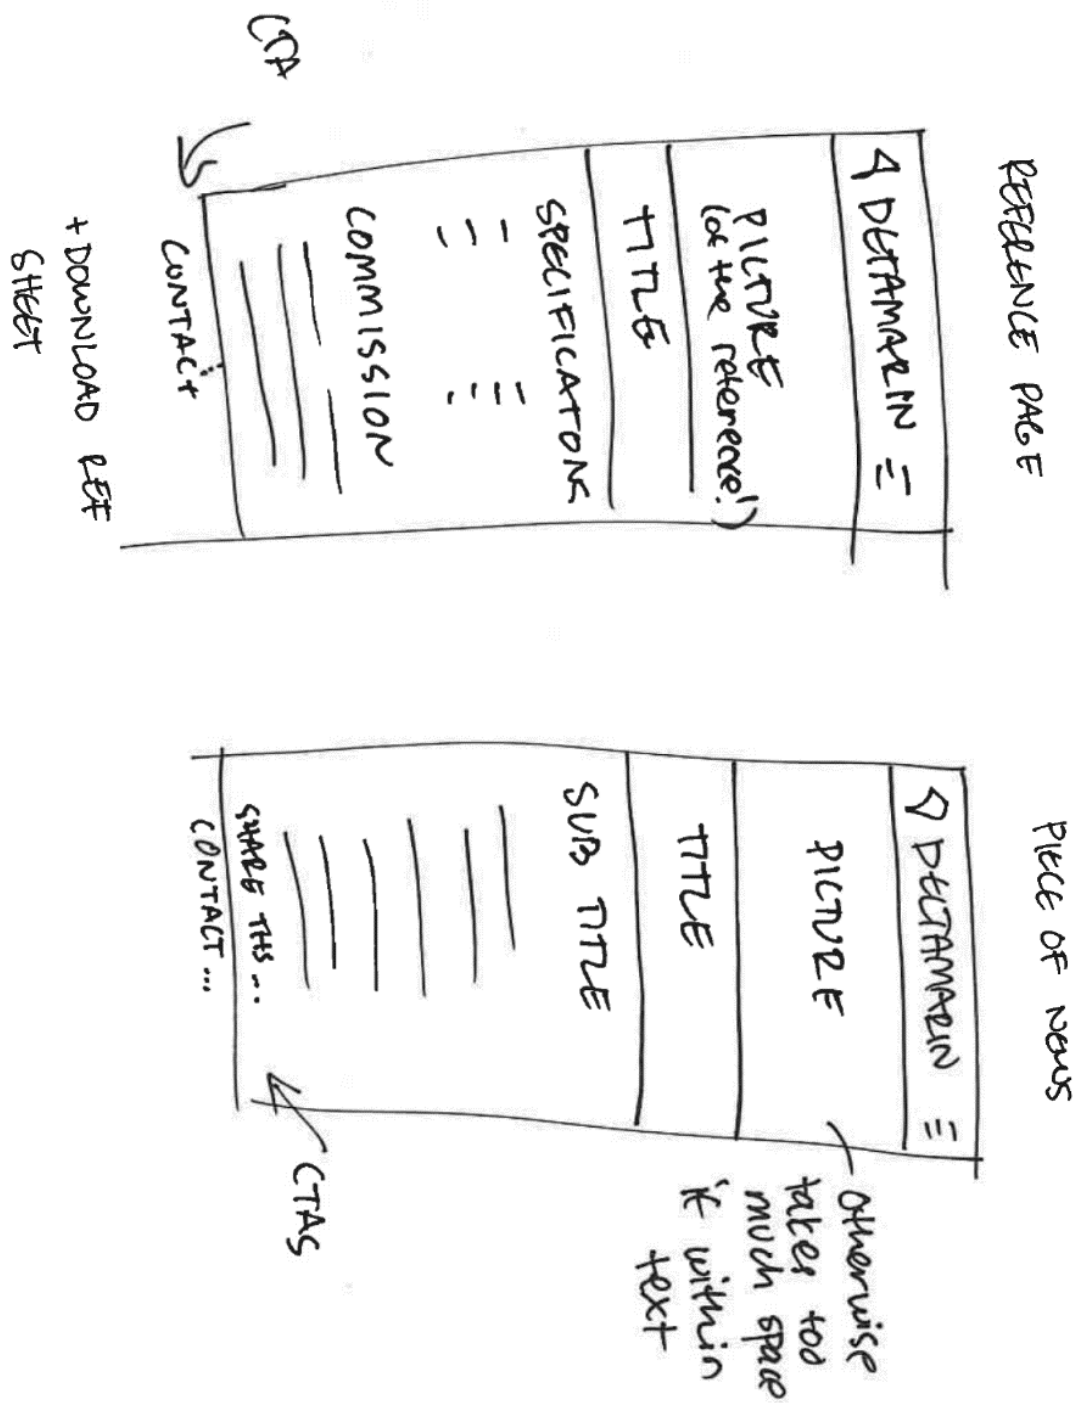 REFERENCE PAGE
DELTAMARIN
PICTURE
(of the reference!)
TITLE
SPECIFICATONS
COMMISSION
CONTACT
CTA
+ DOWNLOAD REF
SHEET
PIECE OF NEWS
DELTAMARIN
PICTURE
TITLE
SUB TITLE
SHARE THS...
CONTACT...
CTAS
otherwise
takes too
much space
if within
text